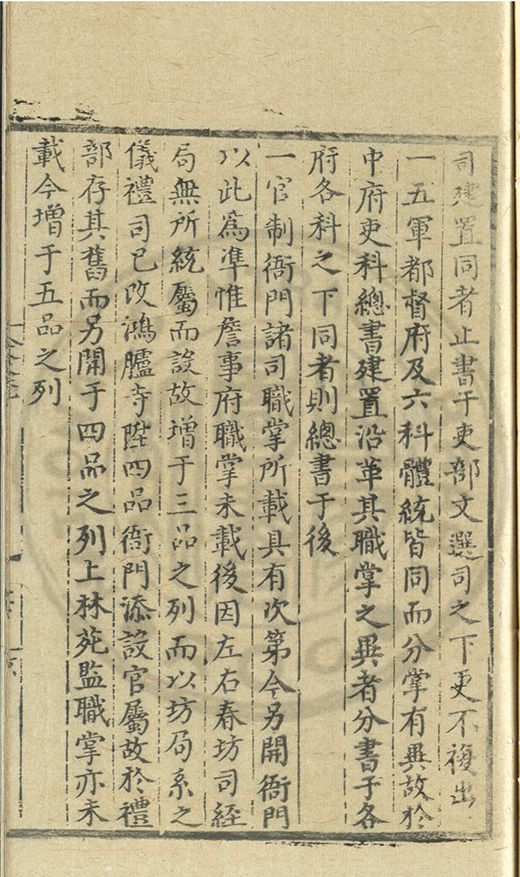 司建置同者止書于吏部文選司之下更不複出
一五軍都督府及六科體統皆同而分掌有異故於
中府吏科總書建置沿革其職掌之異者分書于各
府各科之下同者則總書于後
一官制衙門諸司職掌所載具有次第今另開衙門
以此爲凖惟詹事府職掌未載後因左右春坊司經
局無所統屬而設故增于三品之列而以坊局系之
儀禮司已改鴻臚寺陞四品衙門添設官屬故於禮
部存其舊而另開于四品之列上林苑監職掌亦未
載今增于五品之列